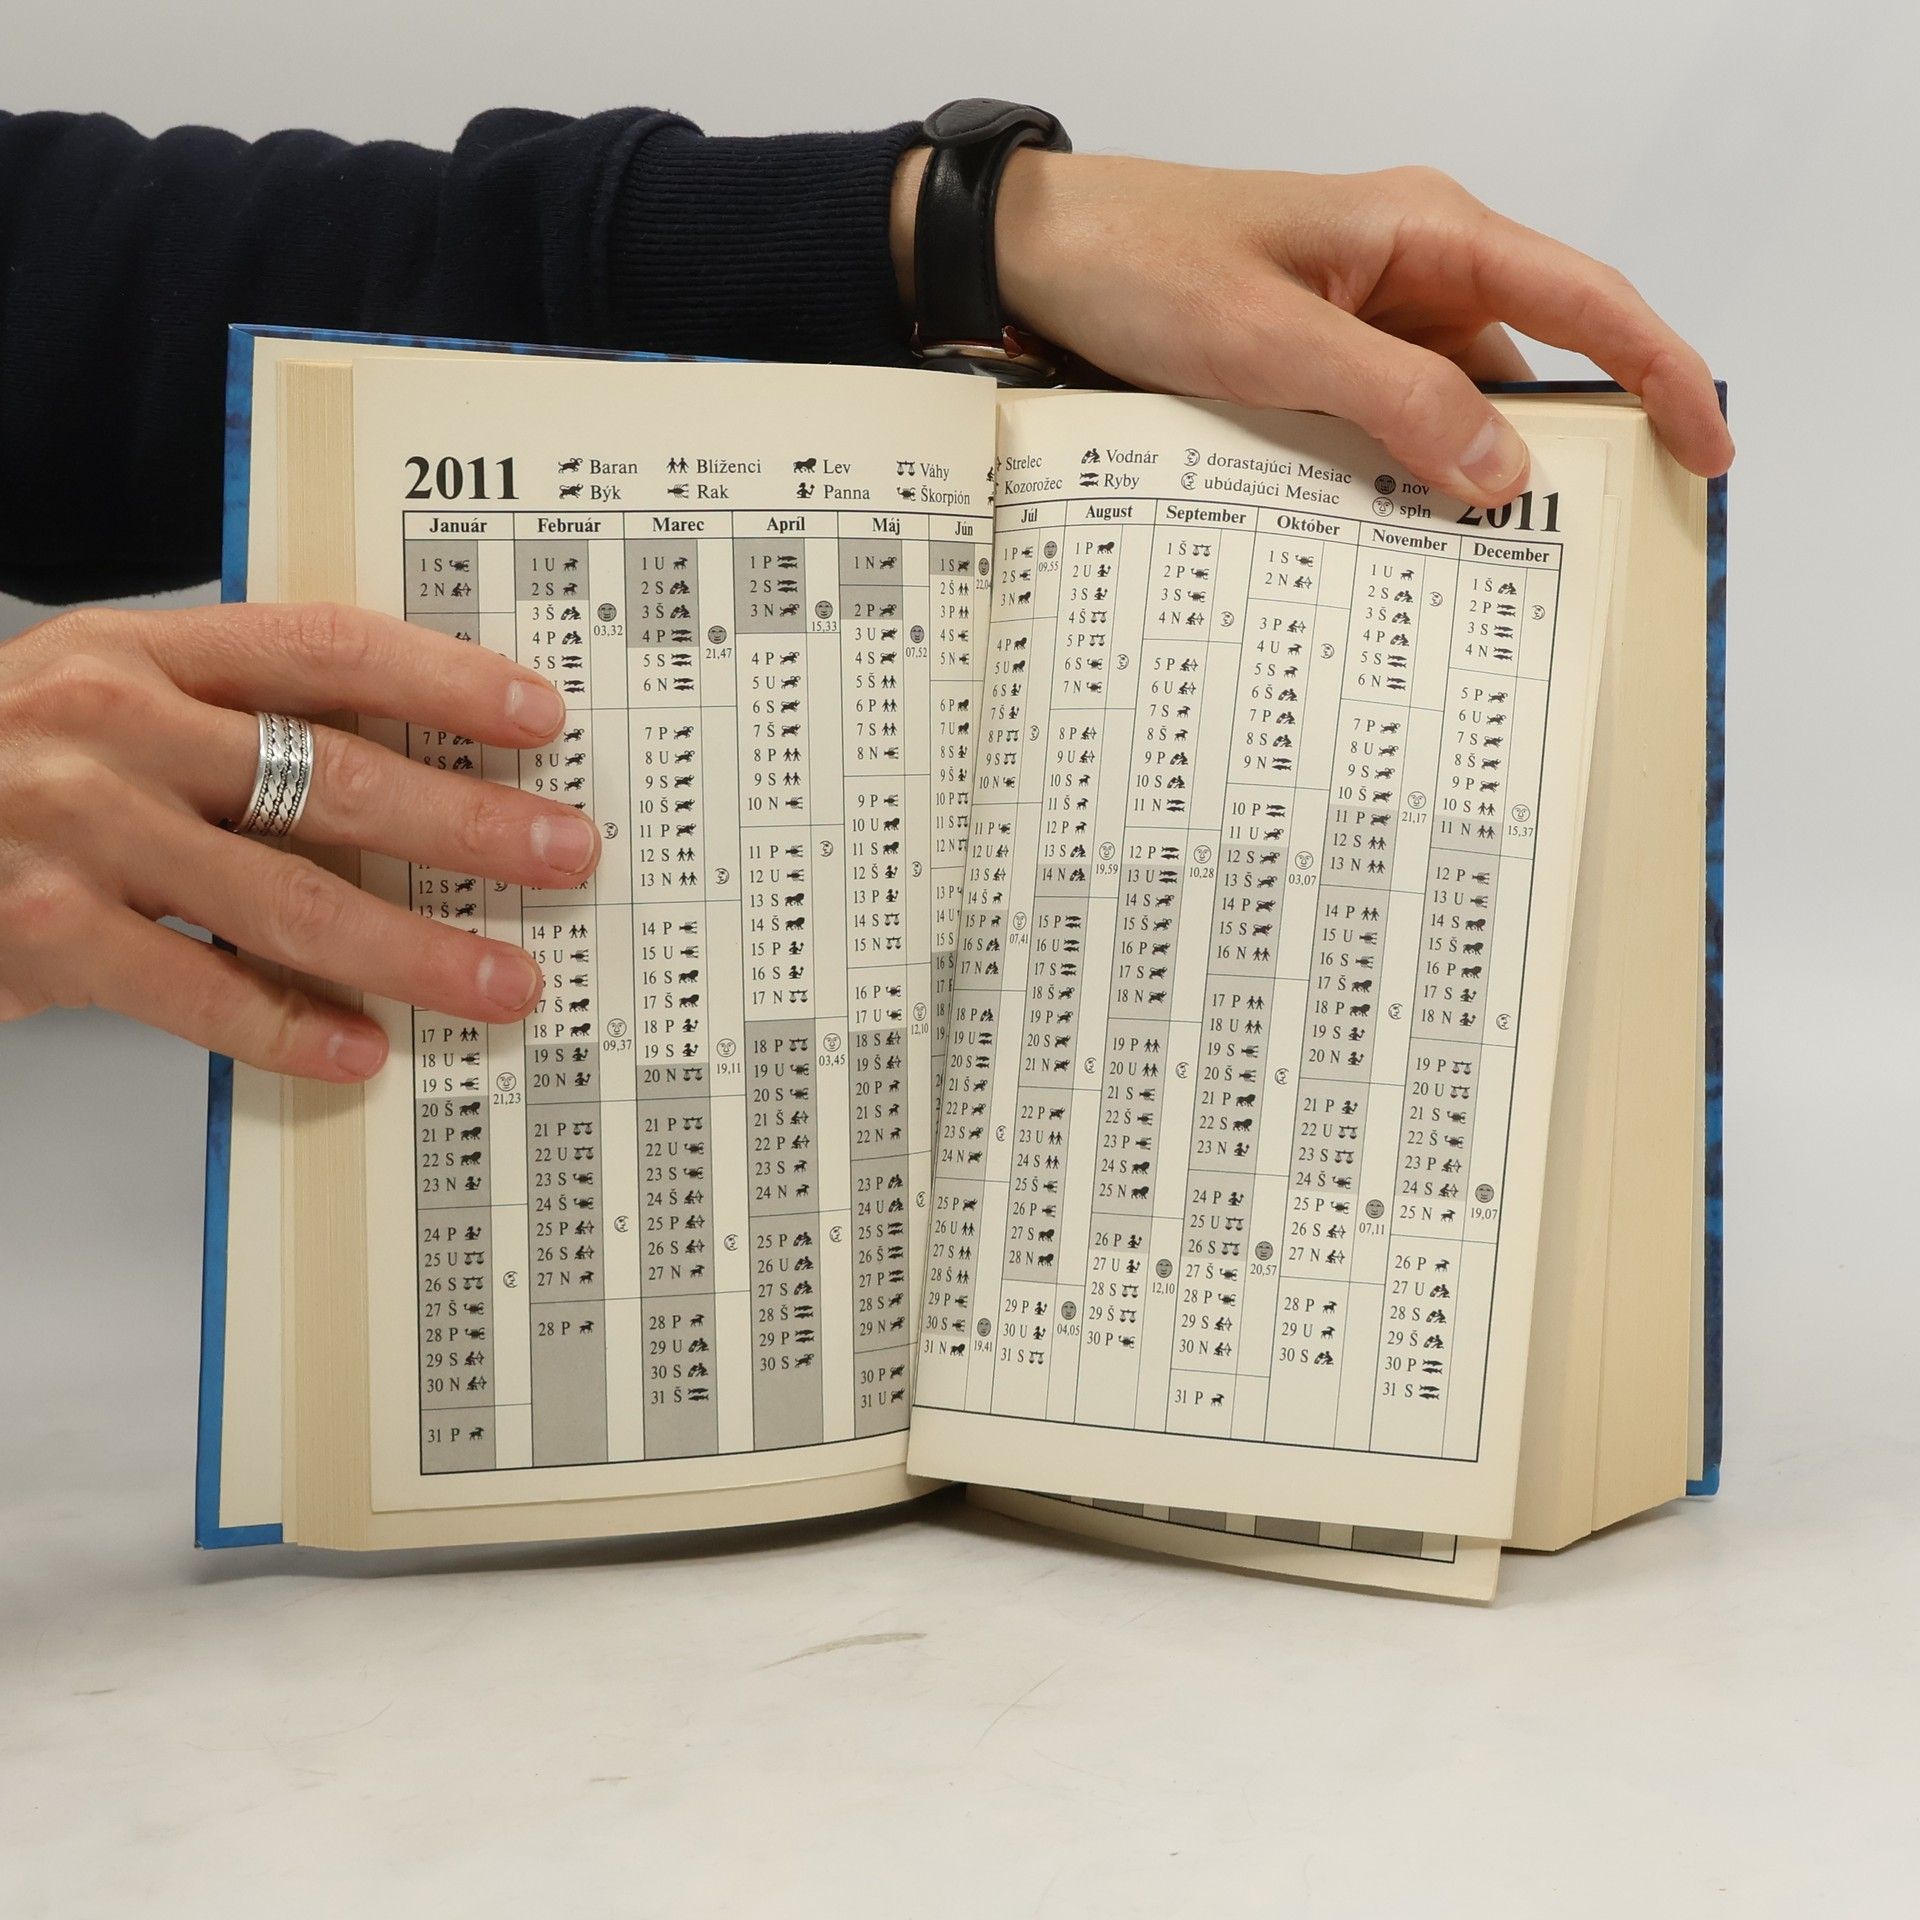 2011 Baran Blíženci Lev Váhy
Býk Rak Panna Škorpión
Január Február Marec Apríl Máj Jún
1 S 1 U 1 U 1 P 1 N 1 S
2 N 2 S 2 S 2 S 2 P 2 Š
3 Š 3 Š 3 N 3 U 3 P
03,32 15,33 22,0
4 P 4 P 4 P 4 S 4 S
21,47 07,52
5 S 5 S 5 U 5 Š 5 N
6 N 6 S 6 P 6 P
7 P 7 P 7 Š 7 S 7 U
8 S 8 U 8 U 8 P 8 N 8 S
9 S 9 S 9 S 9 P 9 Š
10 Š 10 N 10 U 10 P
11 P 11 P 11 S 11 S
12 S 12 S 12 U 12 Š 12 N
13 Š 13 N 13 S 13 P 13 P
14 P 14 P 14 Š 14 S 14 U
15 U 15 U 15 P 15 N 15 S
S 16 S 16 S 16 P 16 Š
17 P 17 Š 17 Š 17 N 17 U 17
12,10
18 U 18 P 18 P 18 P 18 S 18
09,37 03,45
19 S 19 S 19 S 19 U 19 Š 19
21,23 19,11
20 Š 20 N 20 N 20 S 20 P
21 P 21 P 21 P 21 Š 21 S
22 S 22 U 22 U 22 P 22 N
23 N 23 S 23 S 23 S 23 P
24 P 24 Š 24 Š 24 N 24 U
25 U 25 P 25 P 25 P 25 S
26 S 26 S 26 S 26 U 26 Š
27 Š 27 N 27 N 27 S 27 P
28 P 28 P 28 P 28 Š 28 S
29 S 29 U 29 P 29 N
30 N 30 S 30 S 30 P
31 P 31 Š 31 U
Strelec Vodnár dorastajúci Mesiac nov
Kozorožec Ryby ubúdajúci Mesiac spln 2011
Júl August September Október November December
1 P 1 P 1 Š 1 S 1 U 1 Š
09,55
2 S 2 U 2 P 2 N 2 S 2 P
3 N 3 S 3 S 3 P 3 Š 3 S
4 P 4 Š 4 N 4 U 4 P 4 N
5 U 5 P 5 P 5 S 5 S 5 P
6 S 6 S 6 U 6 Š 6 N 6 U
7 Š 7 N 7 S 7 P 7 P 7 S
8 P 8 P 8 Š 8 S 8 U 8 Š
9 S 9 U 9 P 9 N 9 S 9 P
10 N 10 S 10 S 10 P 10 Š 10 S
21,17 15,37
11 P 11 Š 11 N 11 U 11 P 11 N
12 U 12 P 12 P 12 S 12 S 12 P
10,28 03,07
13 S 13 S 13 U 13 Š 13 N 13 U
19,59
14 Š 14 N 14 S 14 P 14 P 14 S
15 P 15 P 15 Š 15 S 15 U 15 Š
07,41
16 S 16 U 16 P 16 N 16 S 16 P
17 N 17 S 17 S 17 P 17 Š 17 S
18 P 18 Š 18 N 18 U 18 P 18 N
19 U 19 P 19 P 19 S 19 S 19 P
20 S 20 S 20 U 20 Š 20 N 20 U
21 Š 21 N 21 S 21 P 21 P 21 S
22 P 22 P 22 Š 22 S 22 U 22 Š
23 S 23 U 23 P 23 N 23 S 23 P
24 N 24 S 24 S 24 P 24 Š 24 S
19,07
25 P 25 Š 25 N 25 U 25 P 25 N
07,11
26 U 26 P 26 P 26 S 26 S 26 P
20,57
27 S 27 S 27 U 27 Š 27 N 27 U
12,10
28 Š 28 N 28 S 28 P 28 P 28 S
29 P 29 P 29 Š 29 S 29 U 29 Š
04,05
30 S 30 U 30 P 30 N 30 S 30 P
19,41
31 N 31 S 31 P 31 S